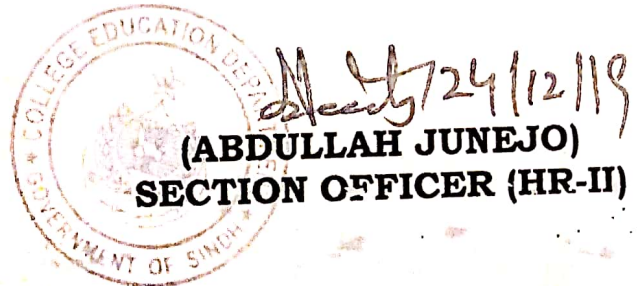 COLLEGE EDUCATION DEPA
GOVERNMENT OF SINDH
24/12/19
(ABDULLAH JUNEJO)
SECTION OFFICER (HR-II)